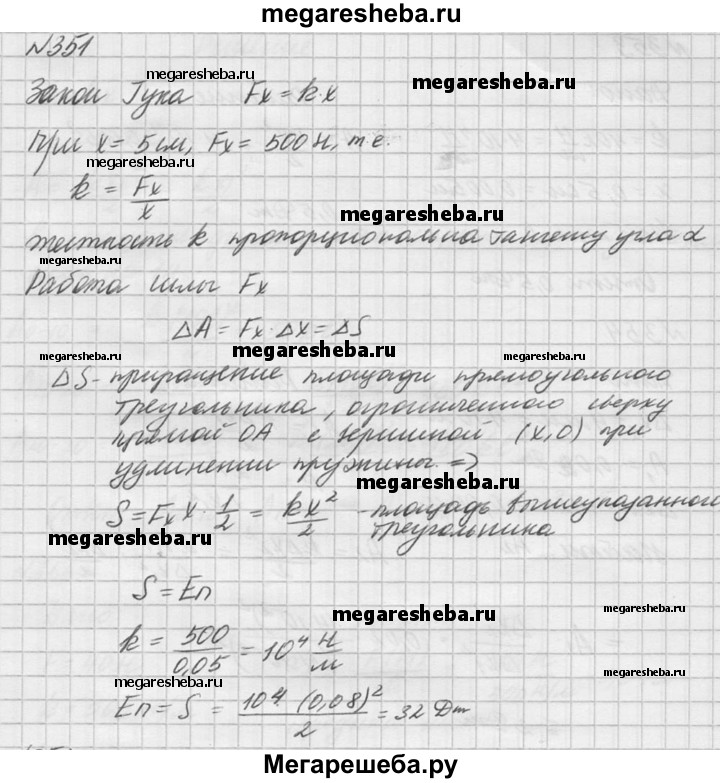 megaresheba.ru
№351
megaresheba.ru
megaresheba.ru
Закон Гука Fx = k·x
При x = 5 см, Fx = 500 Н, т.е.
megaresheba.ru
k = Fx/x
megaresheba.ru
жесткость k пропорциональна тангенсу угла α
megaresheba.ru
Работа силы Fx
ΔA = Fx·Δx = ΔS
megaresheba.ru
megaresheba.ru
ΔS - приращение площади прямоугольного
треугольника, ограниченного сверху
прямой OA с вершиной (x,0) при
удлинении пружины. =>
megaresheba.ru
megaresheba.ru
S = Fx x · 1/2 = kx²/2 - площадь вышеуказанного
треугольника
megaresheba.ru
megaresheba.ru
S = Eп
megaresheba.ru
megaresheba.ru
k = 500/0,05 = 10⁴ Н/м
megaresheba.ru
megaresheba.ru
Eп = S = 10⁴·(0,08)²/2 = 32 Дж
Мегарешеба.ру